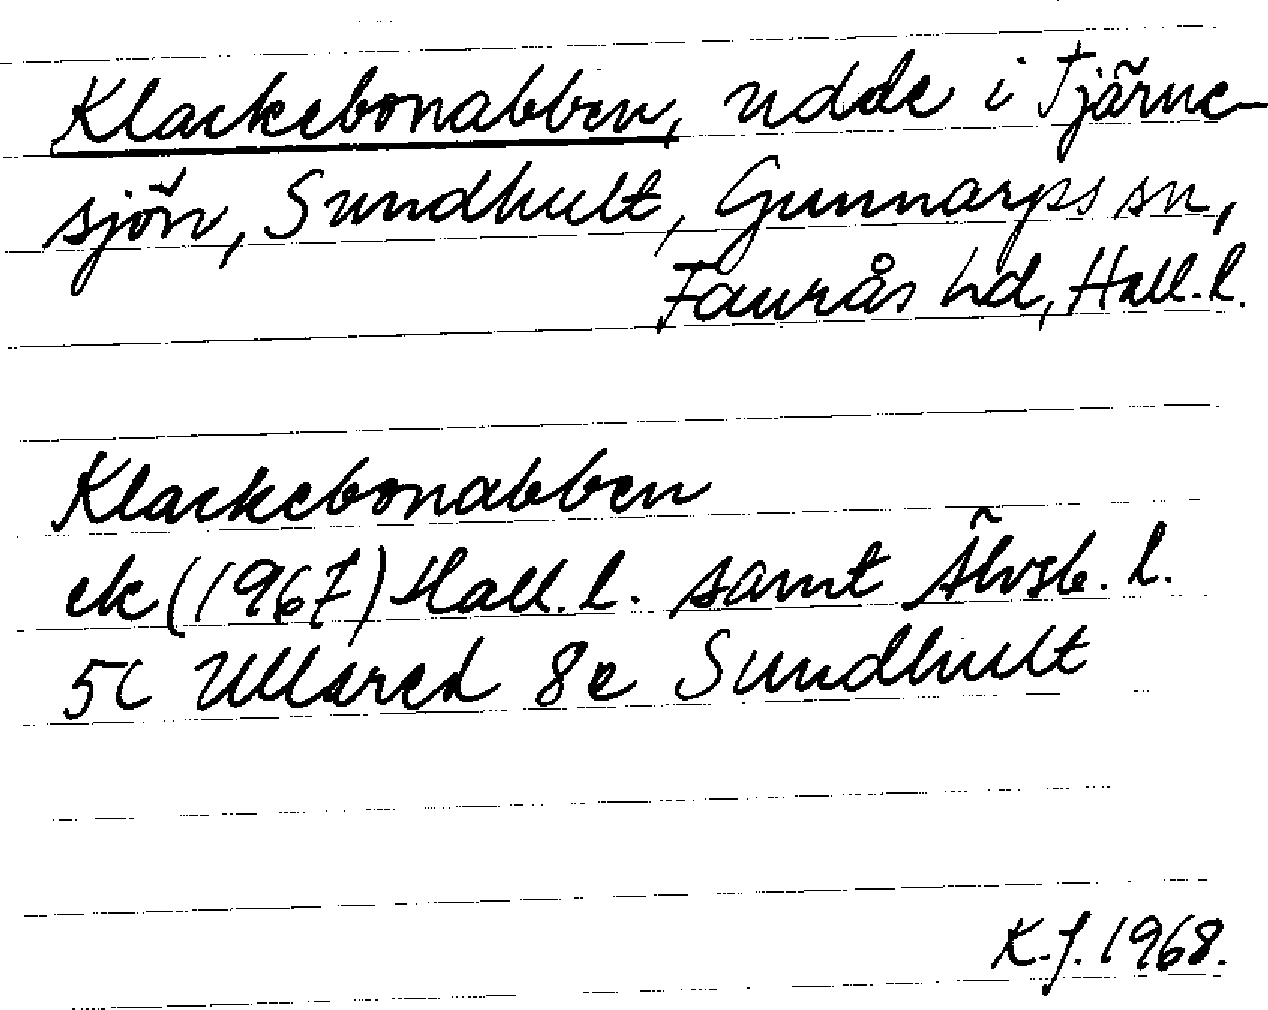 Klackebonabben, udde i Tjärne-
sjön, Sundhult, Gunnarps sn,
Faurås hd, Hall. l.
Klackebonabben
ek (1967) Hall. l. samt Älvsb. l.
5C Ullared 8e Sundhult
K.J. 1968.